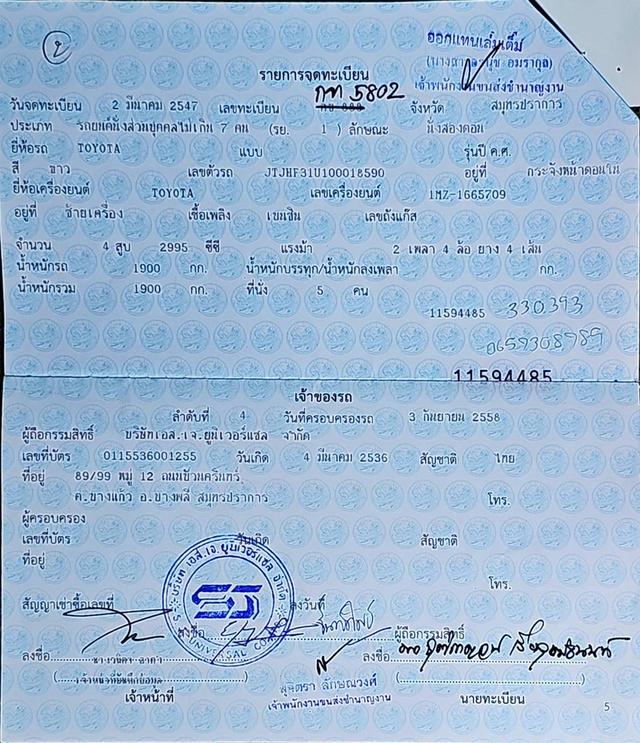 2
ออกแทนเล่มเดิม
อมรากุล)
เจ้าพนักงานขนส่งชำนาญงาน
รายการจดทะเบียน
กท 5802
วันจดทะเบียน 2 มีนาคม 2547 เลขทะเบียน จังหวัด สมุทรปราการ
ประเภท รถยนต์นั่งส่วนบุคคลไม่เกิน 7 คน (รย. 1 ) ลักษณะ นั่งสองตอน
ยี่ห้อรถ TOYOTA แบบ รุ่นปี ค.ศ.
สี ขาว เลขตัวรถ JTJHF31U100018590 อยู่ที่ กระจังหน้าตอนใน
ยี่ห้อเครื่องยนต์ TOYOTA เลขเครื่องยนต์ 1MZ-1665709
อยู่ที่ ซ้ายเครื่อง เชื้อเพลิง เบนซิน เลขถังแก๊ส
จำนวน 4 สูบ 2995 ซีซี แรงม้า 2 เพลา 4 ล้อ ยาง 4 เส้น
น้ำหนักรถ 1900 กก. น้ำหนักบรรทุก/น้ำหนักลงเพลา กก.
น้ำหนักรวม 1900 กก. ที่นั่ง 5 คน
11594485 330393
0659308989
11594485
เจ้าของรถ
ลำดับที่ 4 วันที่ครอบครองรถ 3 กันยายน 2558
ผู้ถือกรรมสิทธิ์ บริษัทเอส.เจ.ยูนิเวอร์แซล จำกัด
เลขที่บัตร 0115536001255 วันเกิด 4 มีนาคม 2536 สัญชาติ ไทย
ที่อยู่ 89/99 หมู่ 12 ถนนศรีนครินทร์
ต.บางแก้ว อ.บางพลี สมุทรปราการ โทร.
ผู้ครอบครอง
เลขที่บัตร วันเกิด สัญชาติ
ที่อยู่
โทร.
บริษัท เอส.เจ.ยูนิเวอร์แซล จำกัด
SJ
สัญญาเช่าซื้อเลขที่ ลงวันที่
ลงชื่อ ผู้ถือกรรมสิทธิ์
ลงชื่อ ลงชื่อ
เจ้าหน้าที่บันทึกข้อมูล ลักษณวงศ์
เจ้าพนักงานขนส่งชำนาญงาน
เจ้าหน้าที่ นายทะเบียน
5